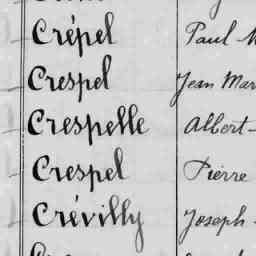 Crépel Paul
Crespel Jean Mar
Crespelle Albert-
Crespel Pierre
Crévilly Joseph